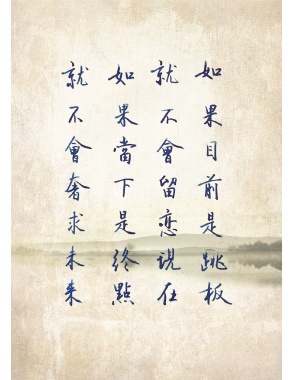 如果目前是跳板
就不會留戀現在
如果當下是終點
就不會奢求未來